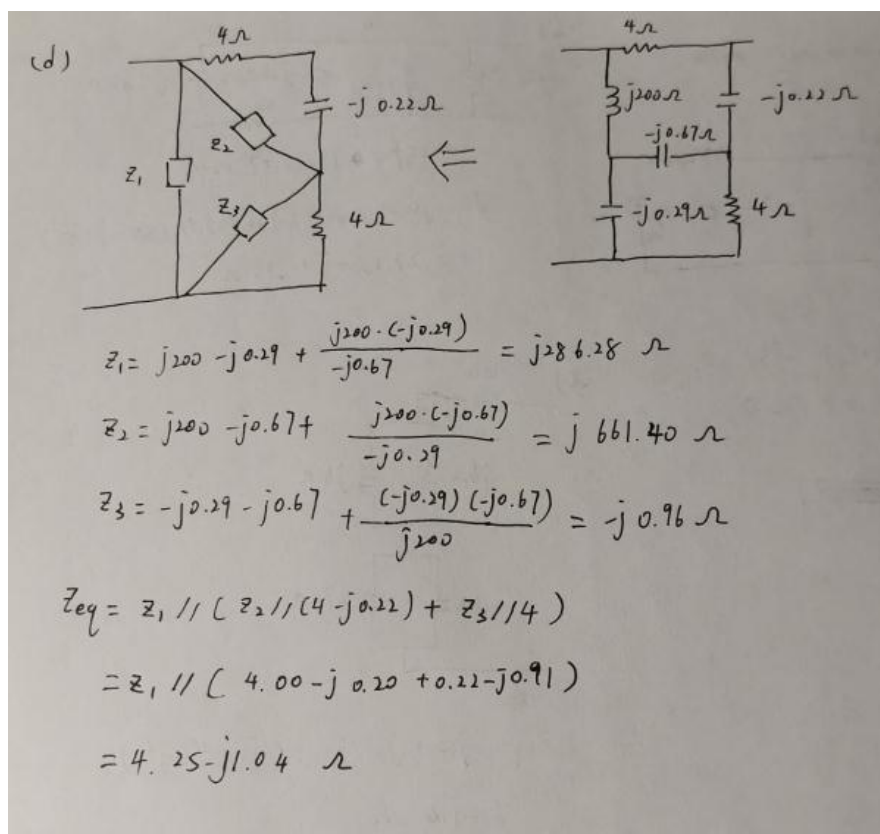 (d)
4Ω
-j 0.22Ω
Z2
Z1
Z3
4Ω
⇐
4Ω
j200Ω
-j0.22Ω
-j0.67Ω
-j0.29Ω
4Ω
Z1 = j200 -j0.29 + j200·(-j0.29) / -j0.67 = j286.28 Ω
Z2 = j200 -j0.67 + j200·(-j0.67) / -j0.29 = j 661.40 Ω
Z3 = -j0.29 - j0.67 + (-j0.29)(-j0.67) / j200 = -j 0.96 Ω
Zeq = Z1 // ( Z2 // (4 -j0.22) + Z3 // 4 )
= Z1 // ( 4.00 -j 0.20 + 0.22 -j0.91 )
= 4.25 -j1.04 Ω